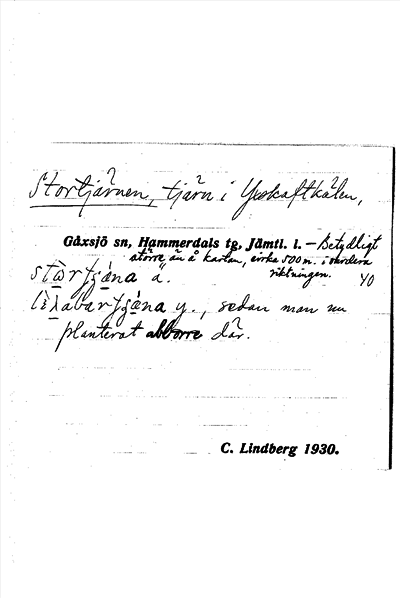 Stortjärnen, tjärn i Yxskaftkälen,
Gåxsjö sn, Hammerdals tg, Jämtl. l. – Betydligt
större än å kartan, cirka 500 m. i nordera
riktningen. 40
ä.
y., sedan man nu
planterat abborre där.
C. Lindberg 1930.